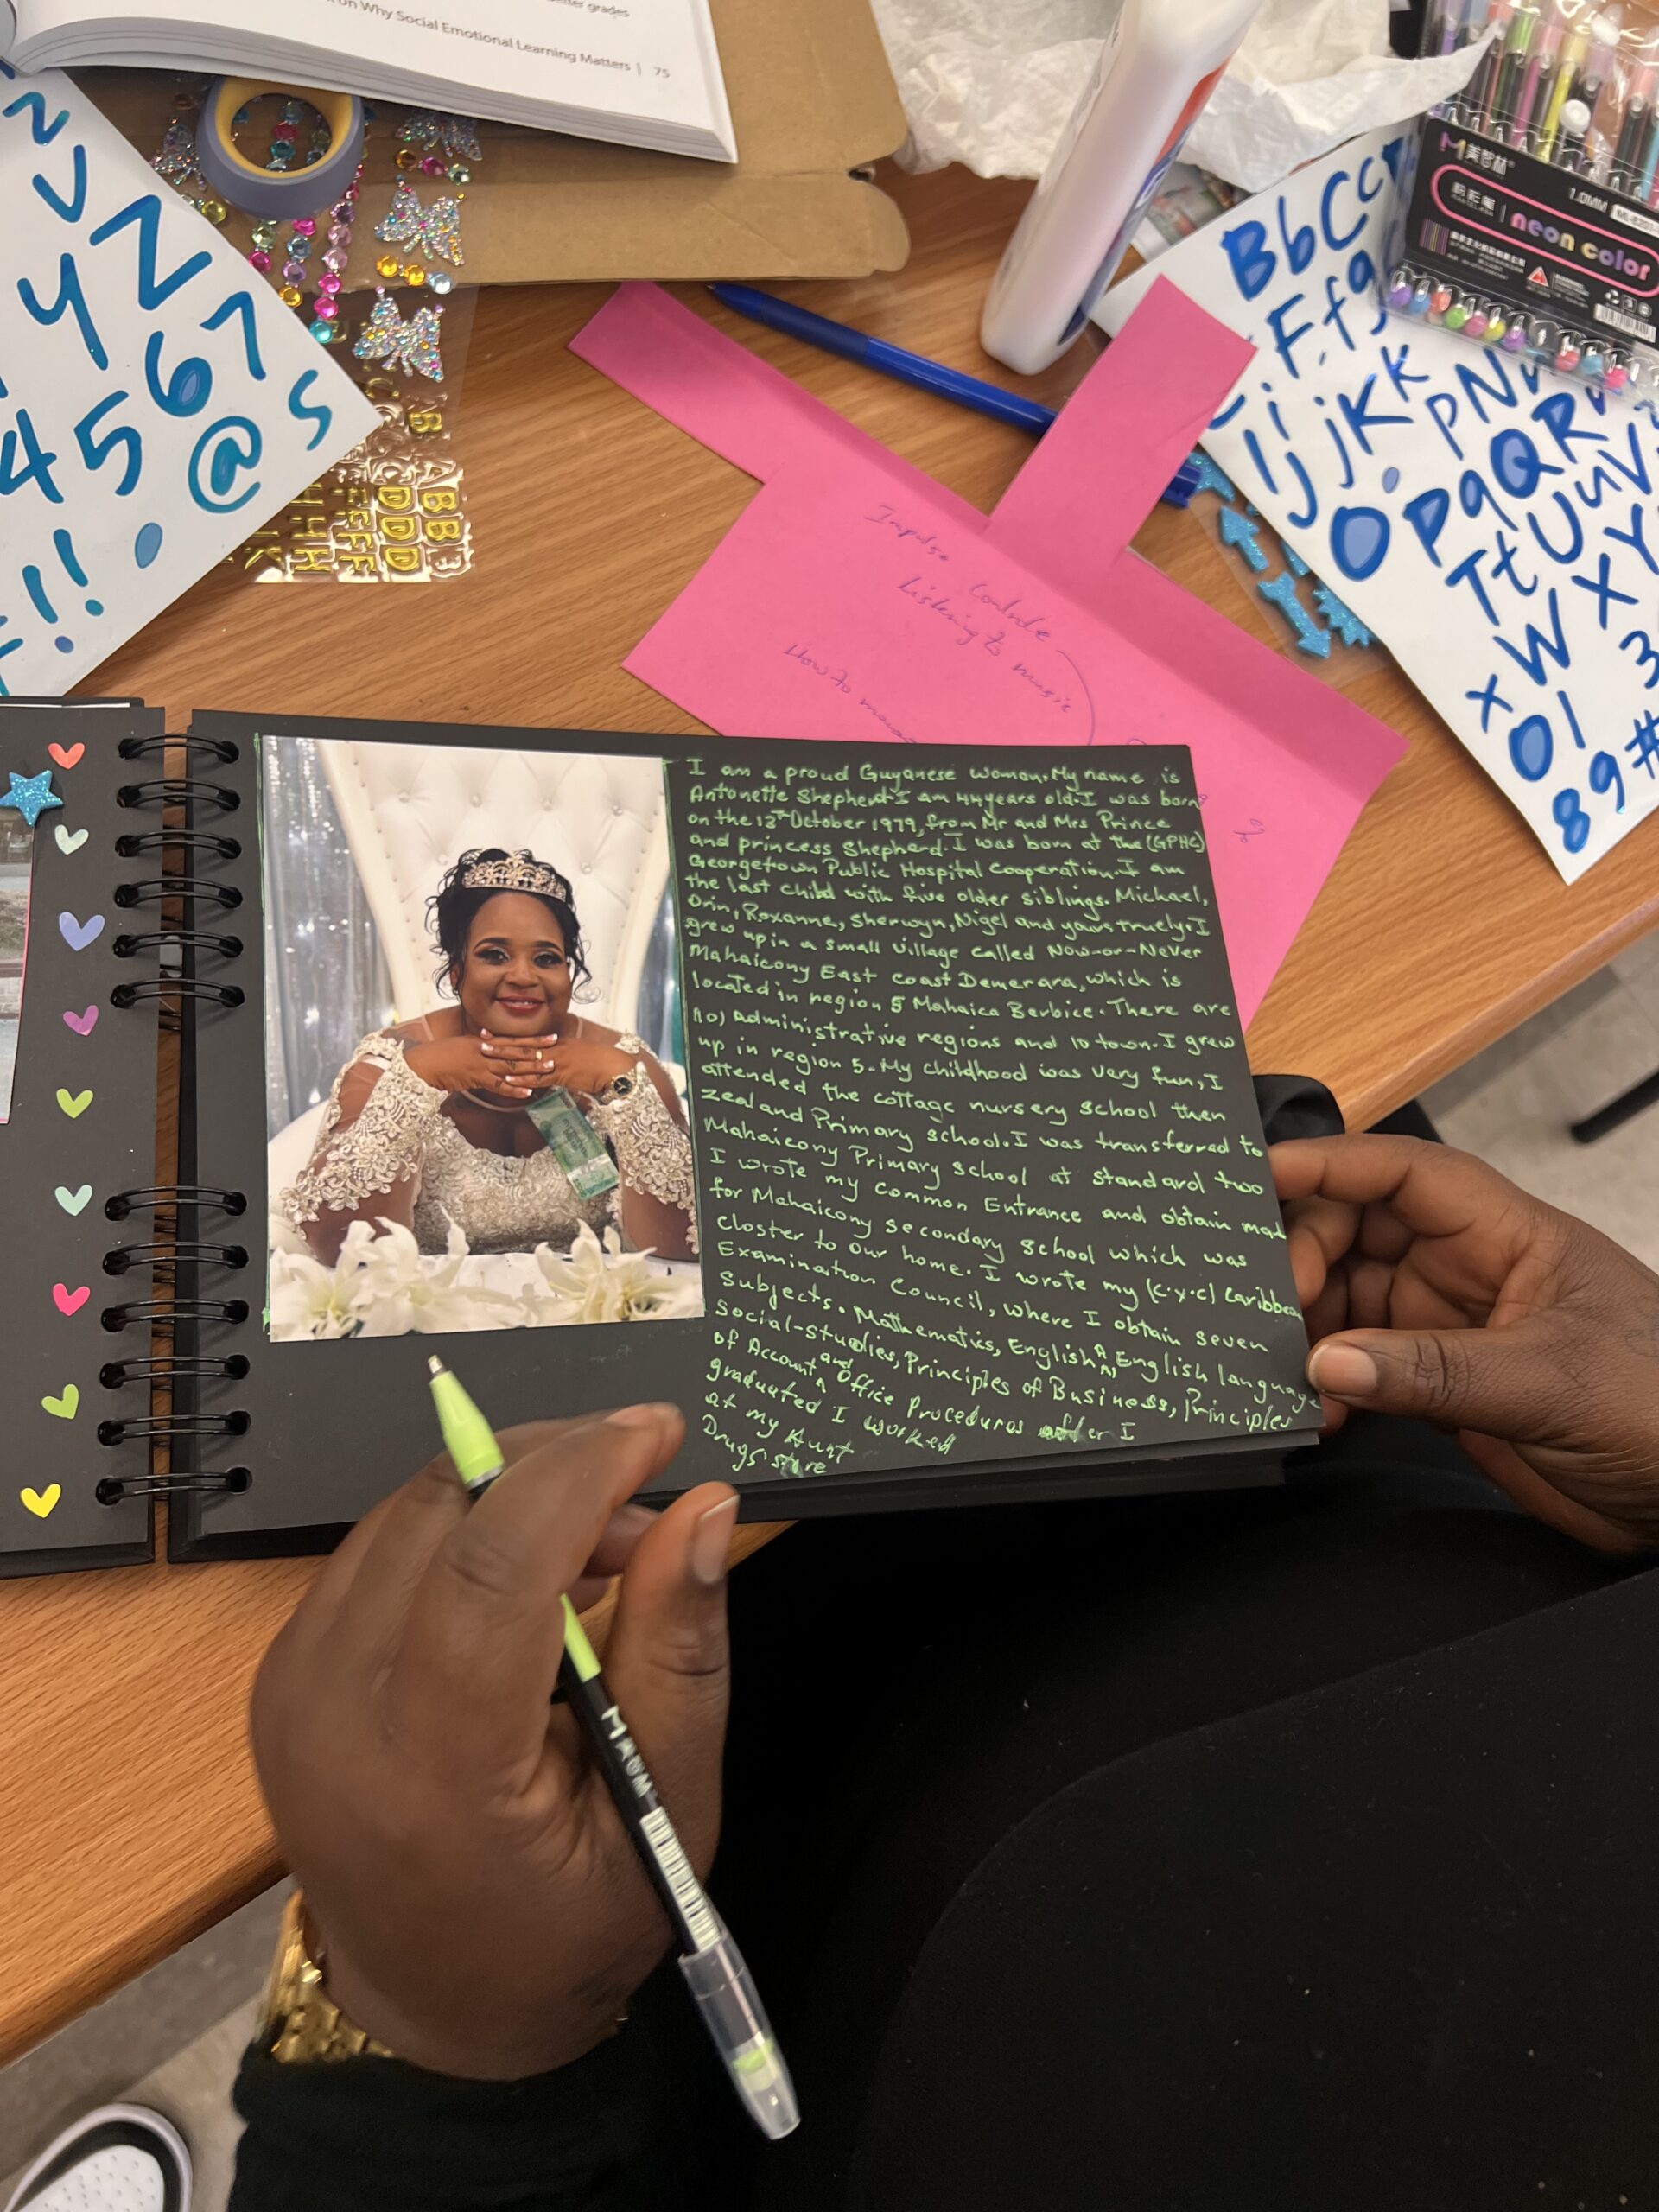 better grades
on Why Social Emotional Learning Matters | 75
z
v
y Z
6 7
4 5 @ s
! !
A B B B
D D D
F F F
H H H
K
Bb Cc
F f g
I i j K k
J j
p N
O P q Q R
T t U u V
W X Y
x 3
0 1
8 9 #
美智林
粉彩笔 neon color
1.0MM
Impulse Controle
Listening to music
How to
?
I am a proud Guyanese Woman. My name is
Antonette Shepherd. I am 44 years old. I was born
on the 13th October 1979, from Mr and Mrs Prince
and princess Shepherd. I was born at the (GPHC)
Georgetown Public Hospital Cooperation. I am
the last child with five older siblings. Michael,
Orin, Roxanne, Sherwyn, Nigel and yours truely. I
grew up in a small village called Now-or-Never
Mahaicony East coast Demerara, which is
located in region 5 Mahaica Berbice. There are
(10) administrative regions and 10 town. I grew
up in region 5. My childhood was very fun, I
attended the cottage nursery school then
zealand Primary school. I was transferred to
Mahaicony Primary school at standard two
I wrote my common Entrance and obtain
for Mahaicony secondary school which was
closter to our home. I wrote my (C.X.C) Caribbean
Examination Council, where I obtain seven
subjects. Mathematics, English A, English language
Social-studies, Principles of Business, Principles
of Account and Office Procedures after I
graduated I worked
at my Aunt
Drugs store